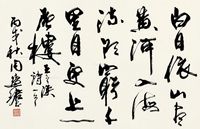 白日依山尽
黄河入海
流欲穷千
里目更上一
层楼 王之涣
诗一首
丙戌秋周慧珺